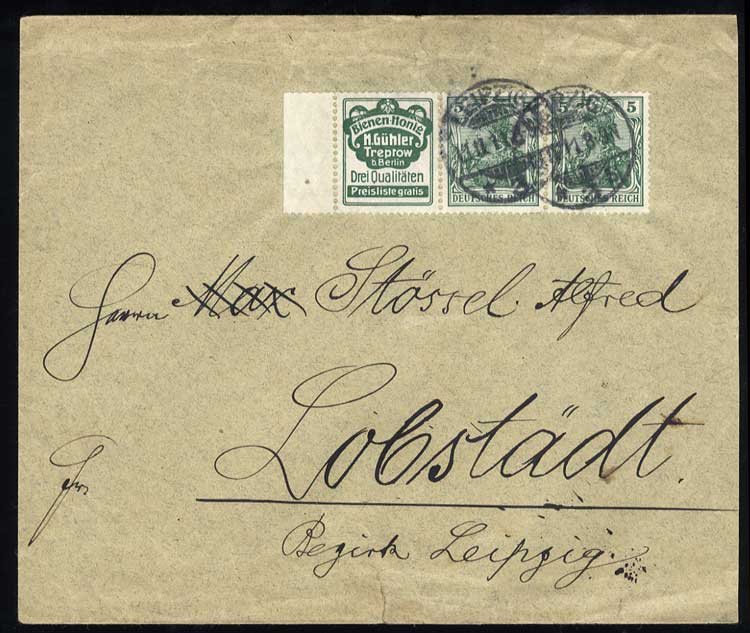 Bienen-Honig
H. Gühler
Treptow
b. Berlin
Drei Qualitäten
Preisliste gratis
5 5
DEUTSCHES REICH DEUTSCHES REICH
LEIPZIG
Herrn Max Stössel. Alfred
Lobstädt.
Fr.
Bezirk Leipzig.